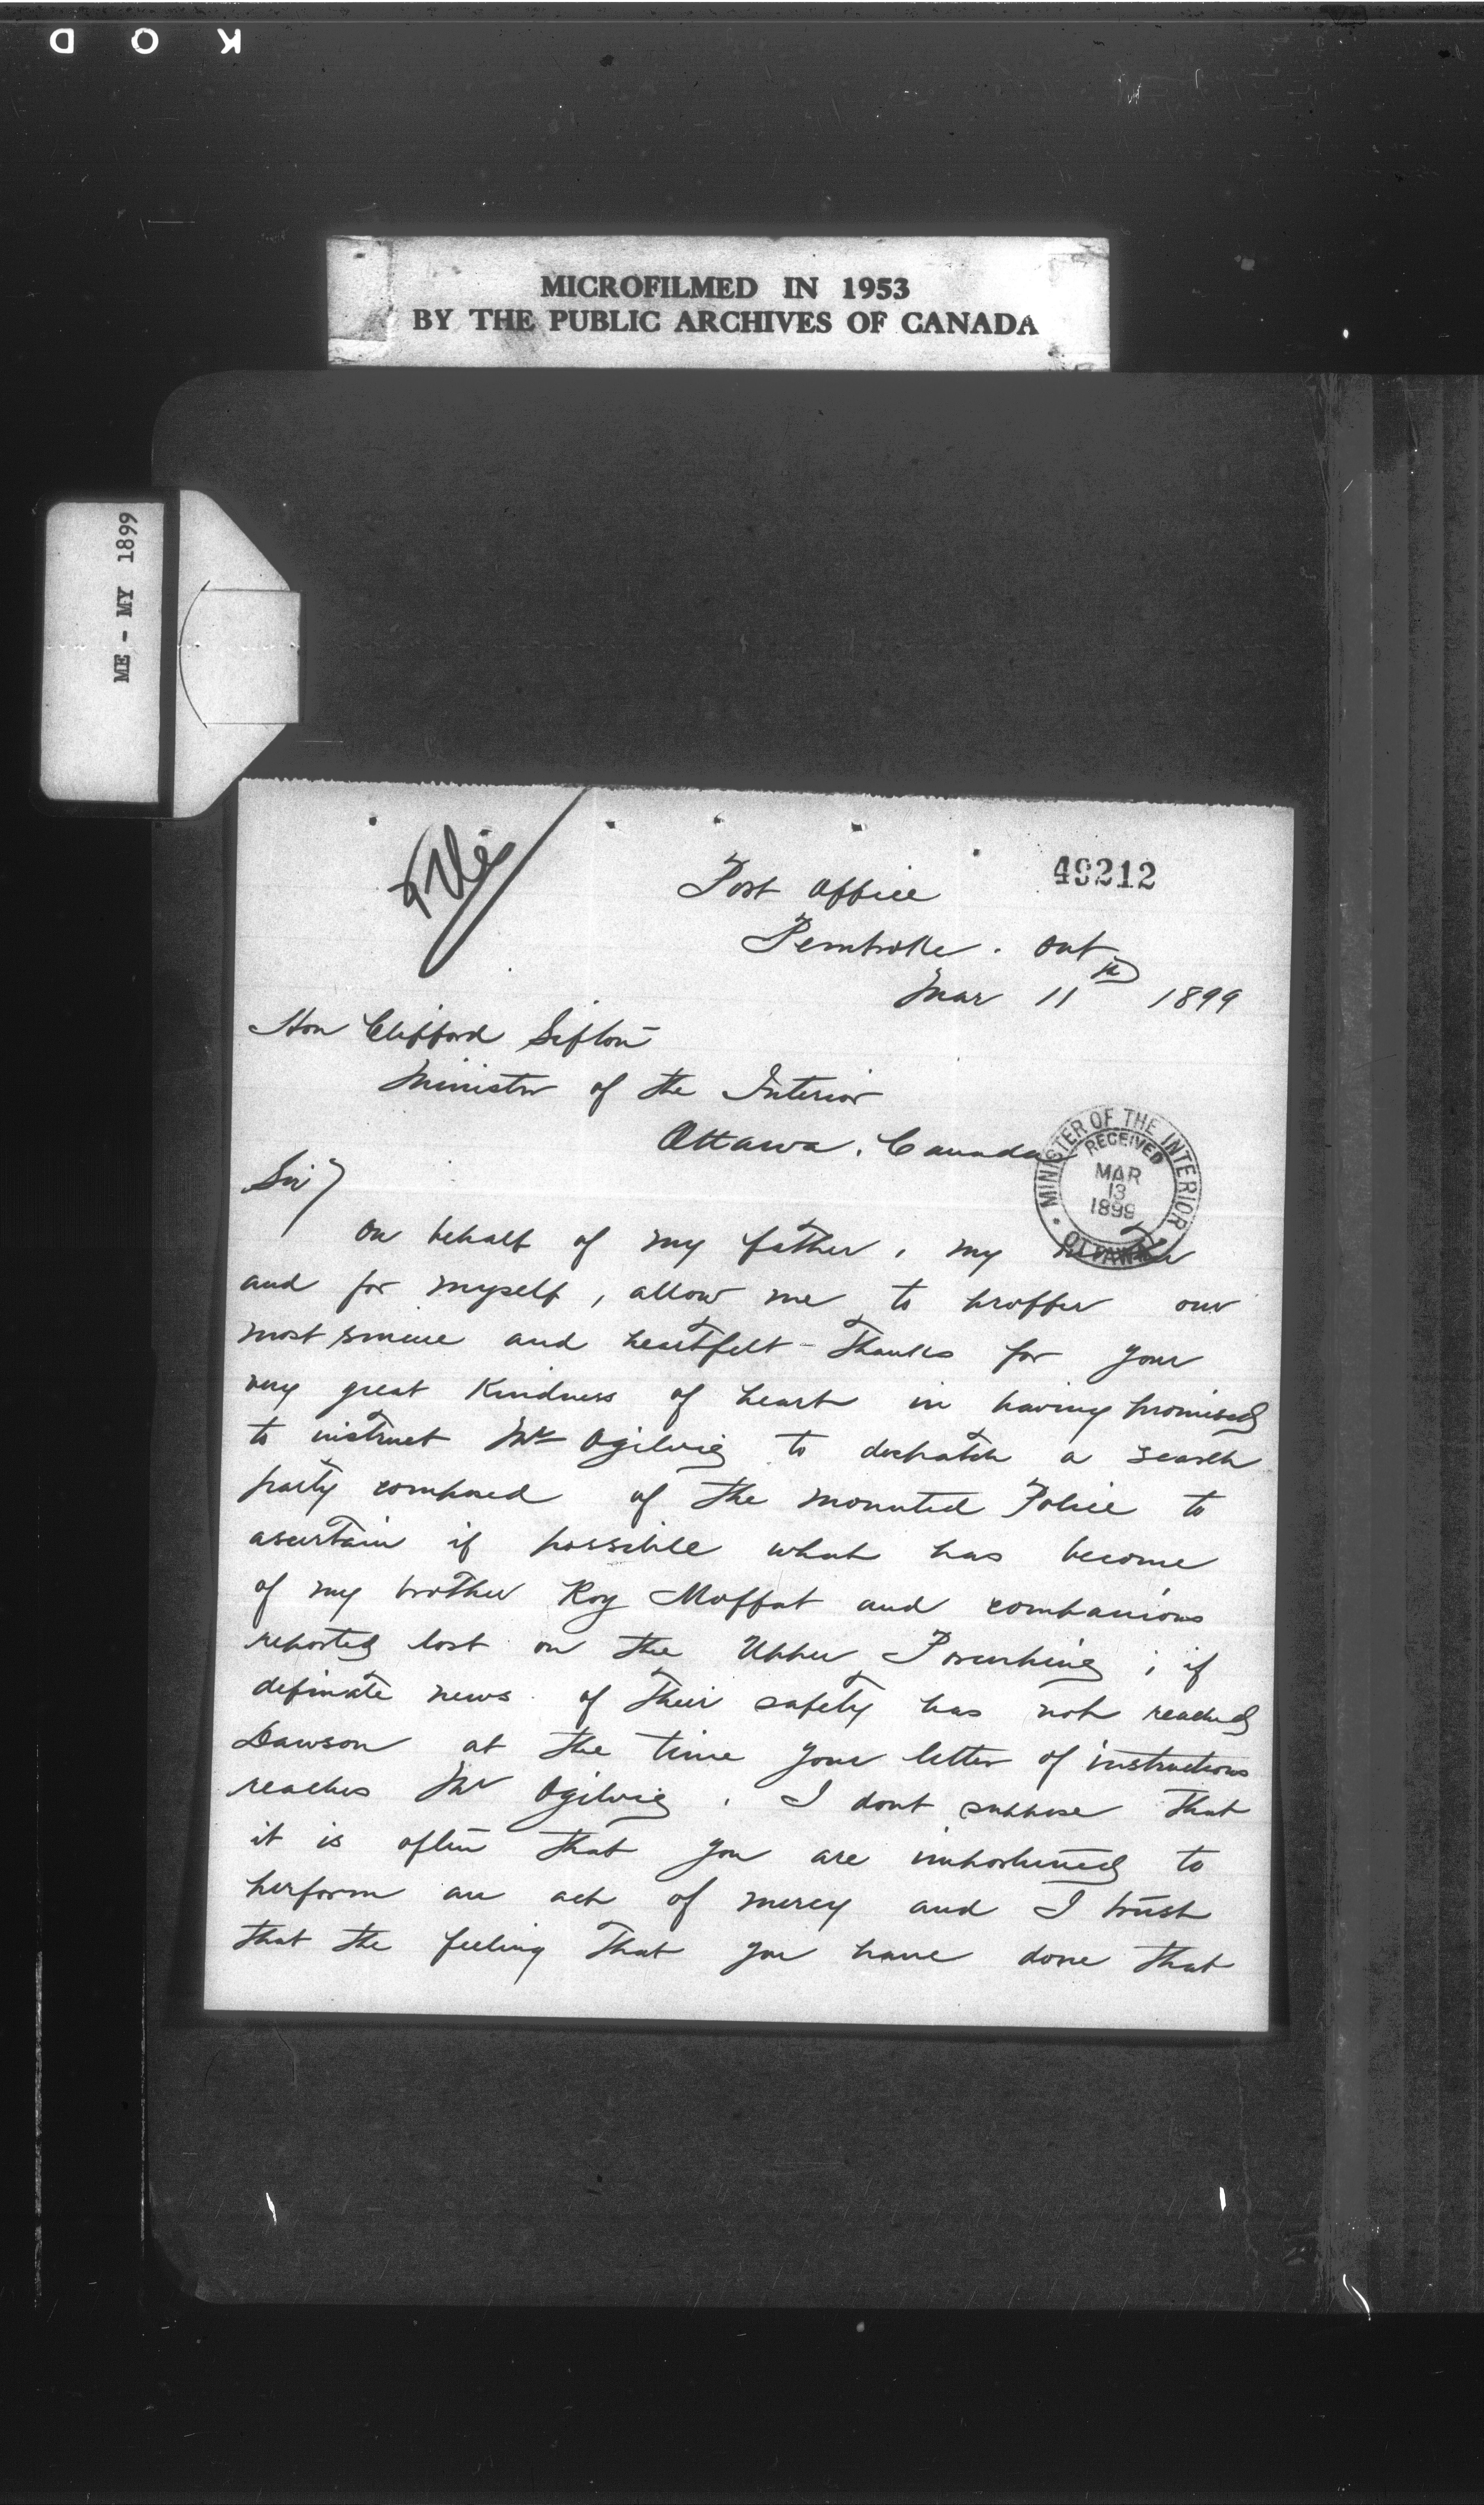 K O D
MICROFILMED IN 1953
BY THE PUBLIC ARCHIVES OF CANADA
ME - MY 1899
File
49212
Post Office
Pembroke. Ont
Mar 11th 1899
Hon Clifford Sifton
Minister of the Interior
Ottawa. Canada
MINISTER OF THE INTERIOR
RECEIVED
MAR
13
1899
OTTAWA
Sir
On behalf of my father, my mother
and for myself, allow me to proffer our
most sincere and heartfelt thanks for your
very great kindness of heart in having promised
to instruct Mr Ogilvie to despatch a search
party composed of the mounted Police to
ascertain if possible what has become
of my brother Roy Moffat and companions
reported lost on the Upper Porcupine; if
definate news of their safety has not reached
Dawson at the time your letter of instructions
reaches Mr Ogilvie. I dont suppose that
it is often that you are importuned to
perform an act of mercy and I trust
that the feeling that you have done that